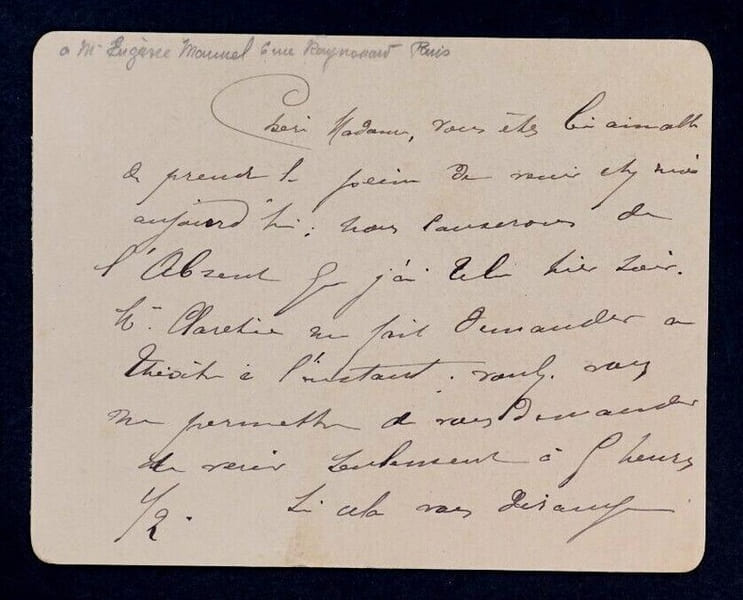 a Mr Eugène Manuel 6 rue Raynouard Paris
Cher Madame, vous êtes bien aimable
de prendre la peine de venir chez moi
aujourd'hui : nous causerons de
l'Absent que j'ai relu hier soir.
Mr Claretie me fait demander au
théâtre à l'instant. voulez vous
me permettre de vous demander
de venir seulement à 5 heures
1/2. Si cela vous dérange